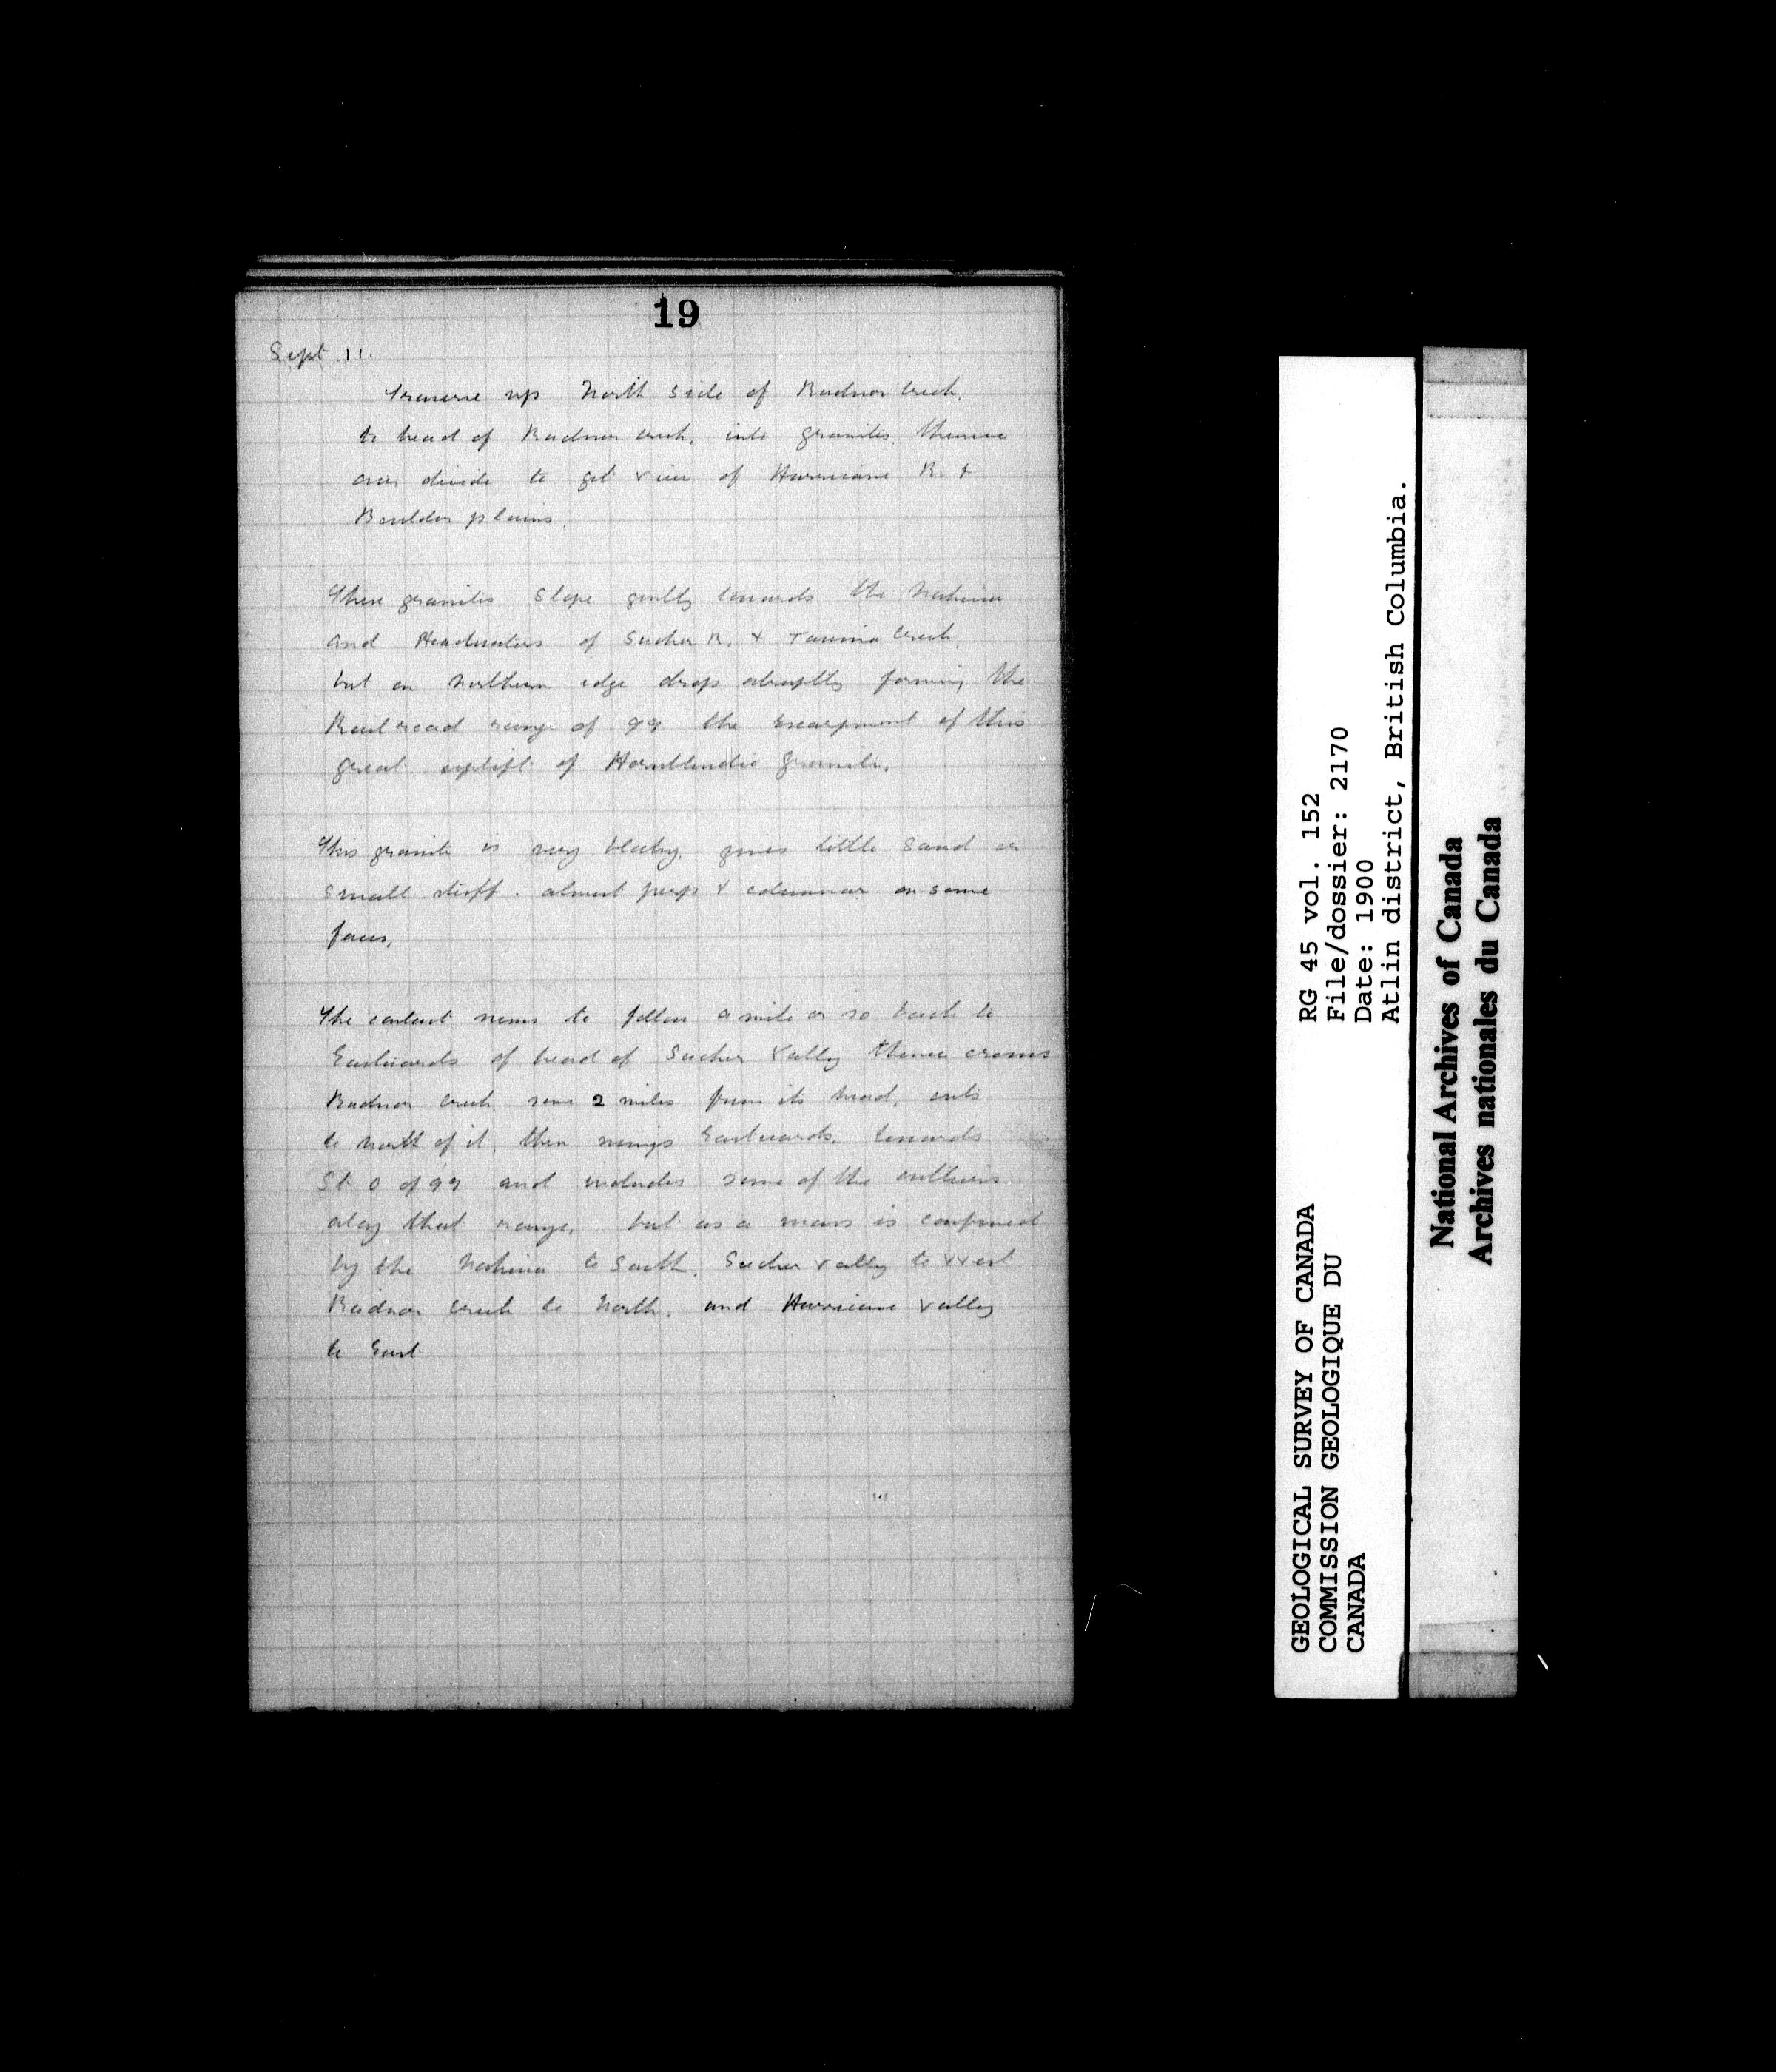 19
Sept 11.
Traverse up North side of Radnor Creek.
to head of Radnor creek, into granites, thence
over divide to get view of Hurricane R. &
Boulder plains.
These granites slope gently towards the Nakina
and Headwaters of Sucker R. & Creek
but on northern edge drops abruptly forming the
Railroad range of 99 the escarpment of this
great uplift of Hornblendic granite.
This granite is very blocky, gives little sand or
small stuff. almost perp & columnar on some
faces,
The contact seems to follow a mile or so back to
Eastwards of head of Sucker Valley thence crosses
Radnor creek, some 2 miles from its head, cuts
to north of it, then swings Eastwards, towards
St. O of 99 and includes some of the outliers
along that range, but as a mass is confined
by the Nakina to South, Sucker valley to West
Radnor creek to North, and Hurricane valley
to East
GEOLOGICAL SURVEY OF CANADA
COMMISSION GEOLOGIQUE DU
CANADA
RG 45 vol. 152
File/dossier: 2170
Date: 1900
Atlin district, British Columbia.
National Archives of Canada
Archives nationales du Canada